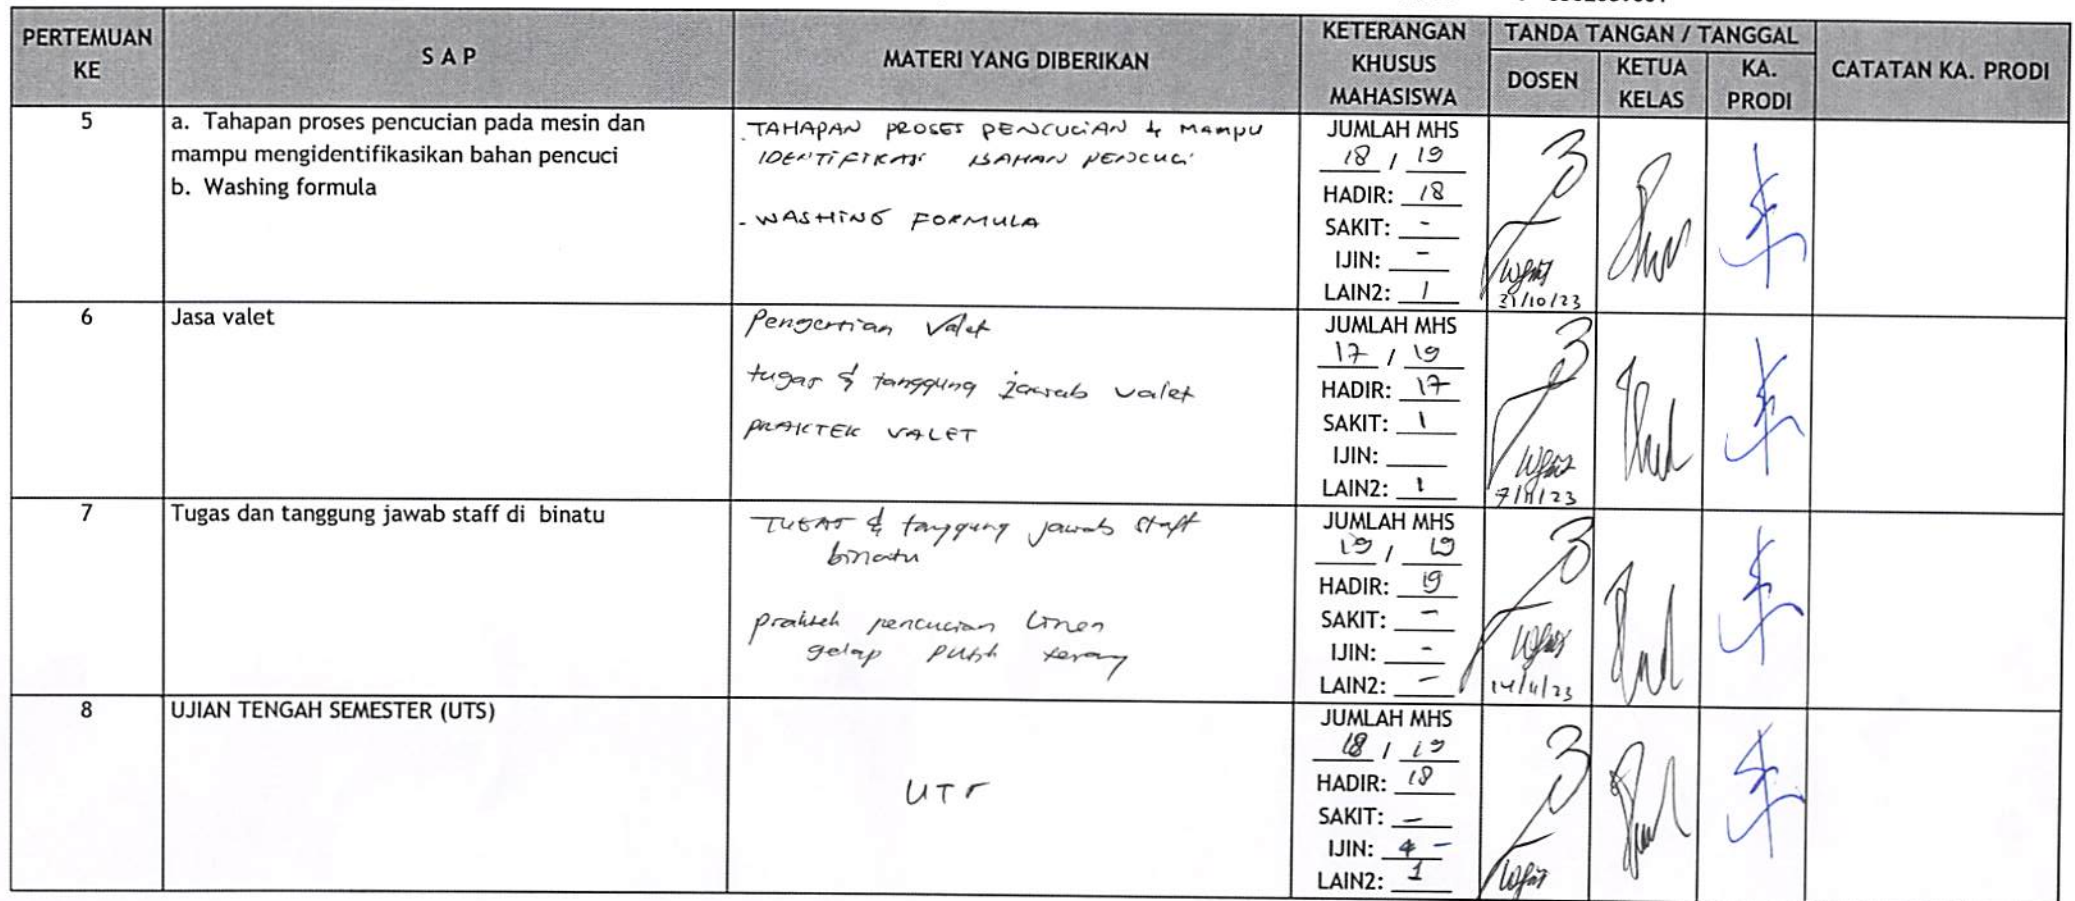 PERTEMUAN KE
S A P
MATERI YANG DIBERIKAN
KETERANGAN KHUSUS MAHASISWA
TANDA TANGAN / TANGGAL
DOSEN
KETUA KELAS
KA. PRODI
CATATAN KA. PRODI
5
a. Tahapan proses pencucian pada mesin dan
mampu mengidentifikasikan bahan pencuci
b. Washing formula
- TAHAPAN PROSES PENCUCIAN & MAMPU
IDENTIFIKASI BAHAN PENCUCI
- WASHING FORMULA
JUMLAH MHS
18 / 19
HADIR: 18
SAKIT: -
IJIN: -
LAIN2: 1
31/10/23
6
Jasa valet
Pengertian Valet
tugas & tanggung jawab valet
PRAKTEK VALET
JUMLAH MHS
17 / 19
HADIR: 17
SAKIT: 1
IJIN:
LAIN2: 1
7/11/23
7
Tugas dan tanggung jawab staff di binatu
TUGAS & tanggung jawab staff
binatu
praktek pencucian linen
gelap putih terang
JUMLAH MHS
19 / 19
HADIR: 19
SAKIT: -
IJIN: -
LAIN2: -
14/11/23
8
UJIAN TENGAH SEMESTER (UTS)
UTS
JUMLAH MHS
18 / 19
HADIR: 18
SAKIT: -
IJIN: -
LAIN2: 1